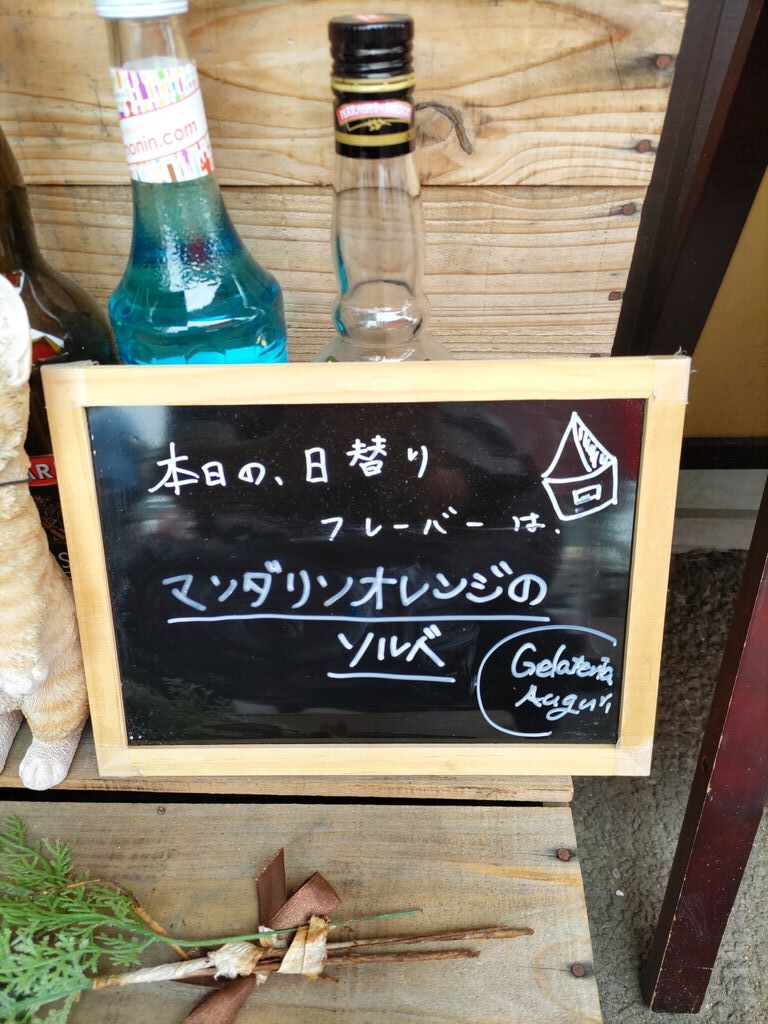 onin.com
本日の、日替り
フレーバーは、
マンダリンオレンジの
ソルベ
Gelateria
Auguri